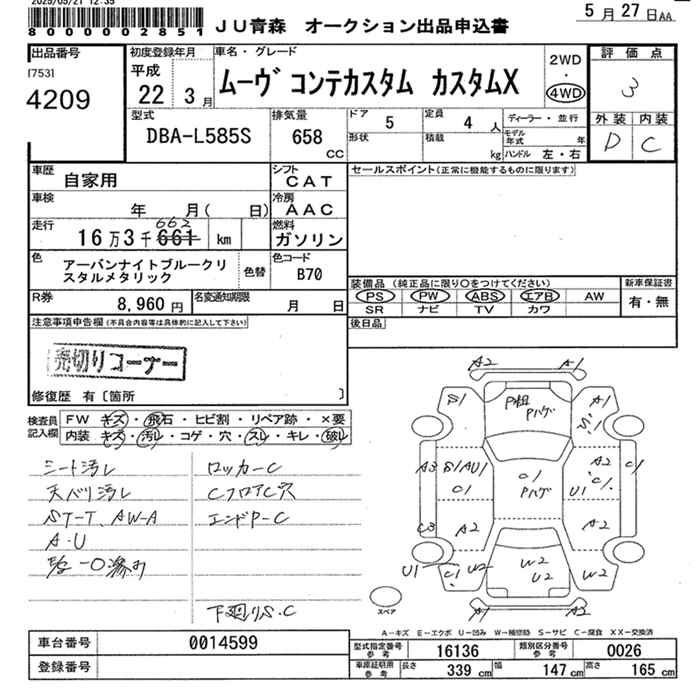 2025/05/21 12:35
8000002851
JU青森 オークション出品申込書
5月27日AA
出品番号
17531
4209
初度登録年月
平成
22 3月
車名・グレード
ムーヴ コンテカスタム カスタムX
2WD
・
4WD
評価点
3
外装 内装
D C
型式
DBA-L585S
排気量
658
cc
ドア
5
形状
定員
4人
積載
kg
ディーラー・並行
モデル年式 年
ハンドル 左・右
車歴
自家用
シフト
CAT
セールスポイント(正常に機能するものに限ります)
車検
年 月( 日)
冷房
AAC
走行
662
16万3千661 km
燃料
ガソリン
色
アーバンナイトブルークリスタルメタリック
色替
色コード
B70
装備品 (純正品に限り○をつけてください)
PS PW ABS エアB AW
SR ナビ TV カワ
新車保証書
有・無
R券
8,960円
名変通知期限
月 日
後日品
注意事項申告欄(不具合内容等は具体的に記入して下さい)
売切りコーナー
修復歴 有〔箇所 〕
検査員記入欄
FW キズ・飛石・ヒビ割・リペア跡・×要
内装 キズ・汚レ・コゲ・穴・スレ・キレ・破レ
シート汚レ
ロッカーC
天ベリ汚レ
CフロアC穴
ST-T、AW-A
エンドP-C
A・U
下廻りS.C
A2 A1
S1 P粗 Pハゲ A1 S1
A3 S1/AU1 C1
C1 Pハゲ
A2 C1 U1 C1
C3 A2 A2
U1 C1 U2 W2 U2 W2
A1 A2
スペア
A−キズ E−エクボ U−凹み W−補修跡 S−サビ C−腐食 XX−交換済
車台番号
0014599
登録番号
型式指定番号
参考
16136
類別区分番号
参考
0026
車庫証明用
参考
長さ 339cm
幅 147cm
高さ 165cm